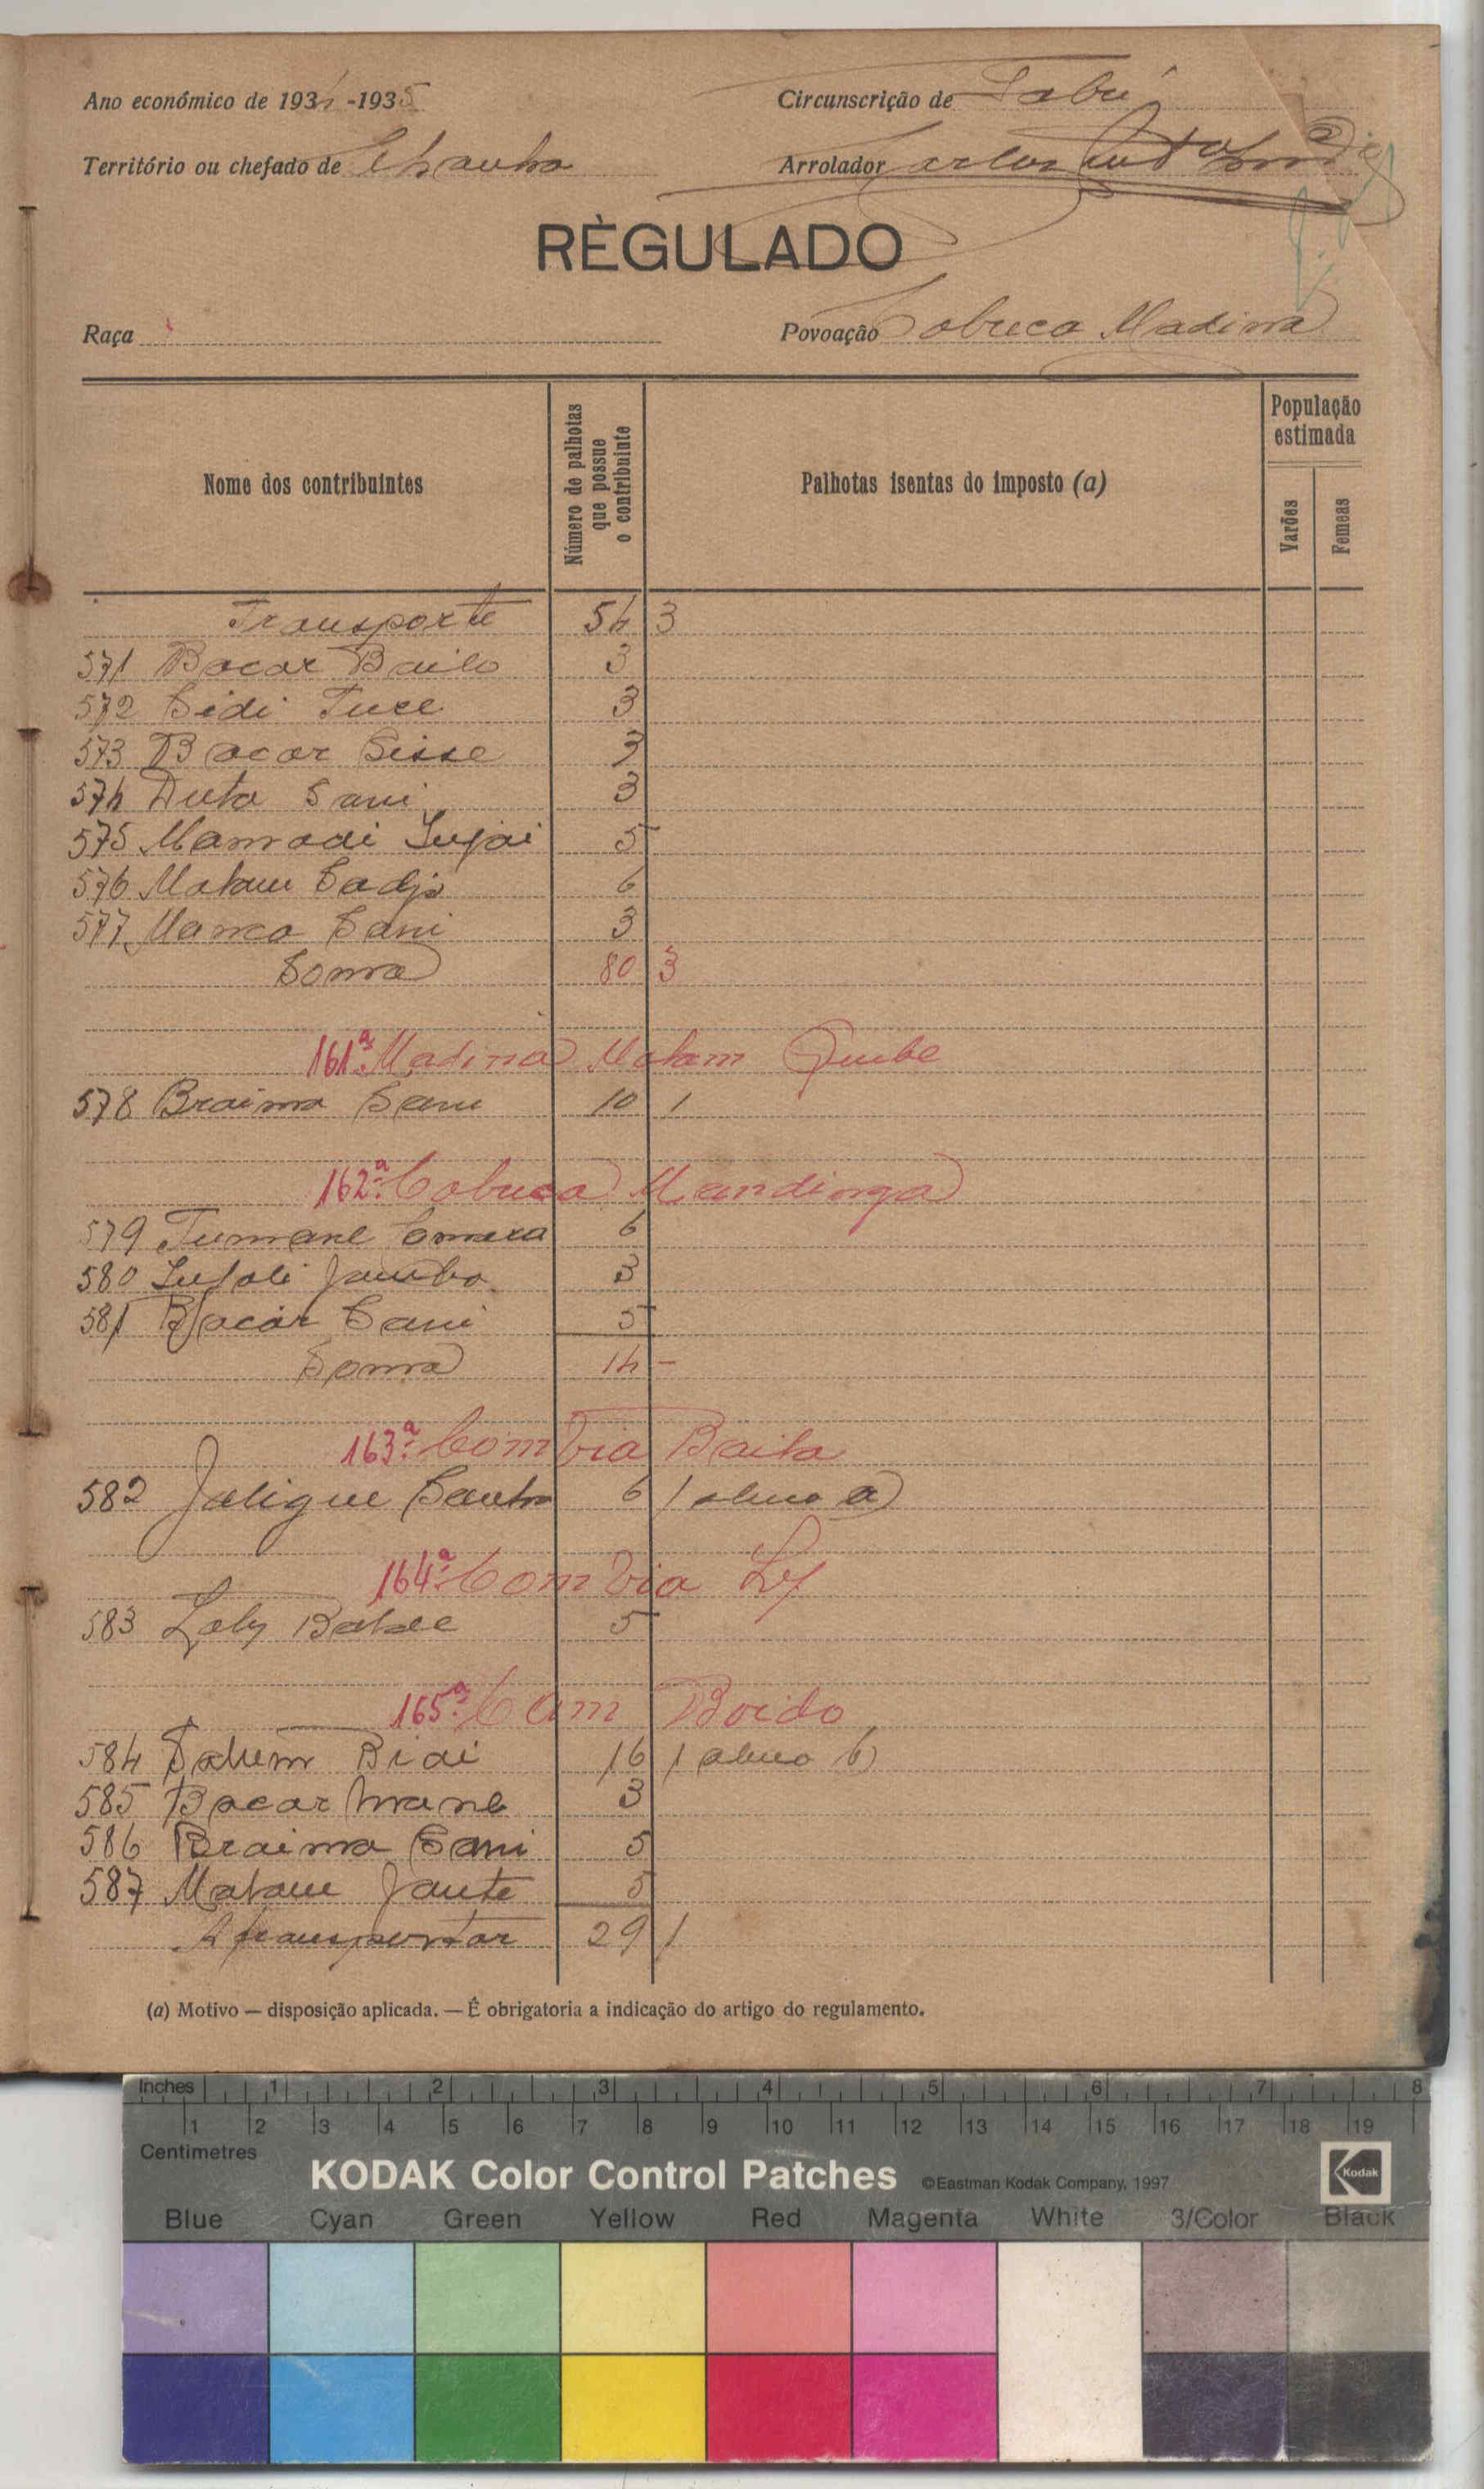 Ano económico de 1934-1935 Circunscrição de Gabú
Território ou chefado de Chanha Arrolador Carlos
RÈGULADO
Raça Povoação Cabuca Madina
Nome dos contribuintes Número de palhotas que possue o contribuinte Palhotas isentas do imposto (a) População estimada
Varões Femeas
Transporte 54 3
571 Bacar Bailo 3
572 Sidi Ture 3
573 Bacar Sisse 3
574 Duta Sani 3
575 Mamadi Sujai 5
576 Malam Sadjo 6
577 Manca Sani 3
Soma 80 3
161ª Madina Malam Quebe
578 Braima Sani 10 1
162ª Cabuca Mandinga
579 Tumane Camara 6
580 Jambo 3
581 Bacar Sani 5
Soma 14 -
163ª Cambia Baila
582 Jaligue Sanha 6 1 aluno a)
164ª Cambia Ly
583 Laly Balde 5
165ª Cam Boido
584 Salum Biai 16 1 aluno b)
585 Bacar Mane 3
586 Braima Sani 5
587 Malam Jante 5
A transportar 29 1
(a) Motivo — disposição aplicada. — É obrigatoria a indicação do artigo do regulamento.
Inches 1 2 3 4 5 6 7 8
1 2 3 4 5 6 7 8 9 10 11 12 13 14 15 16 17 18 19
Centimetres
KODAK Color Control Patches ©Eastman Kodak Company, 1997 Kodak
Blue Cyan Green Yellow Red Magenta White 3/Color Black